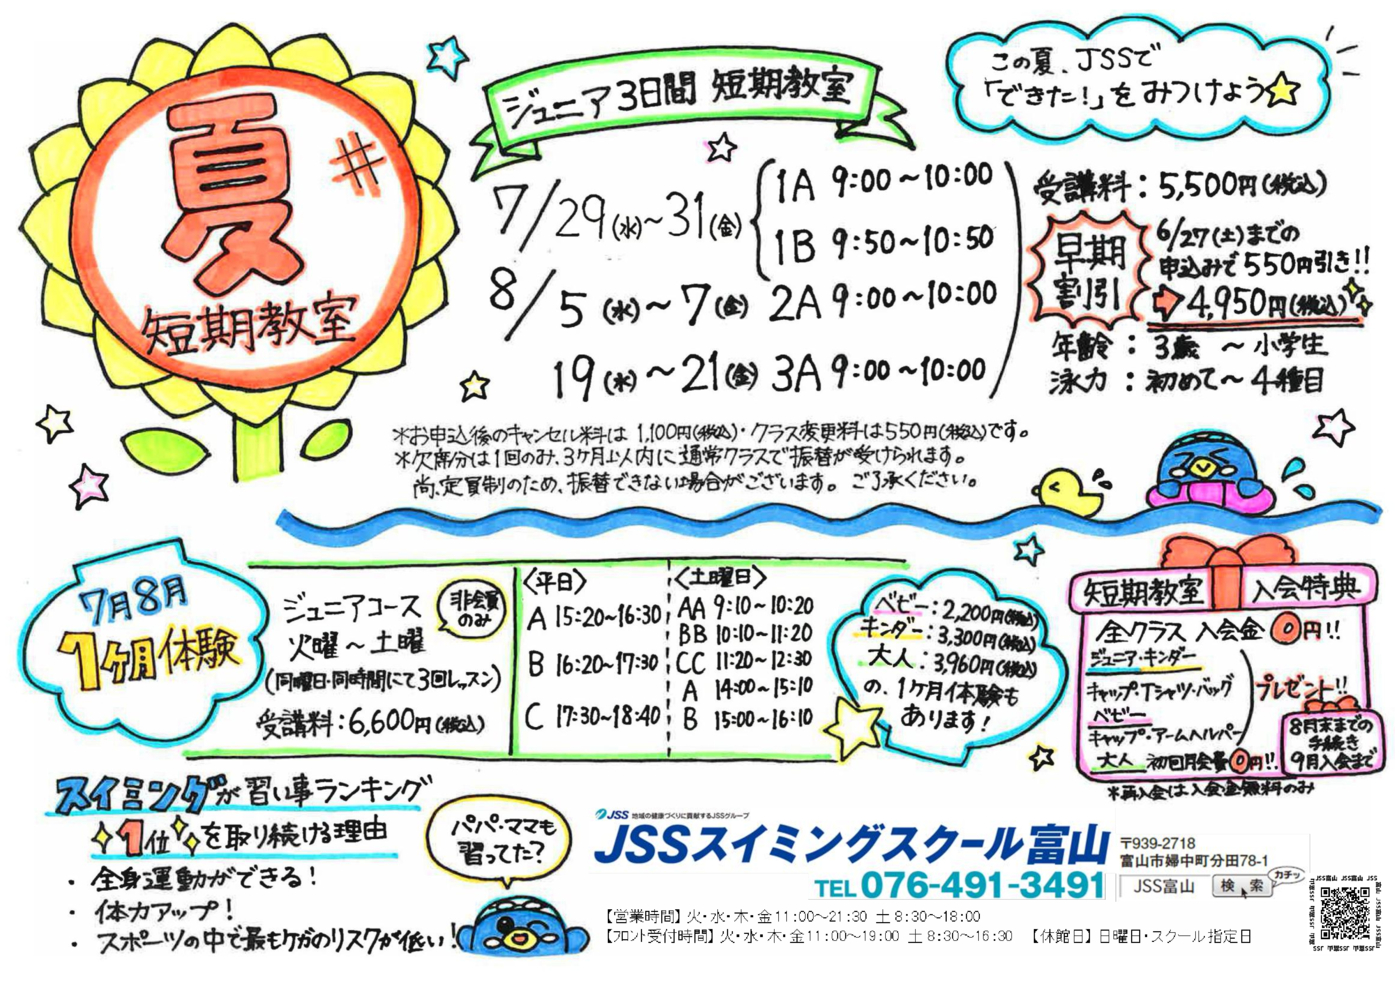 夏
短期教室
ジュニア3日間 短期教室
この夏、JSSで
「できた!」をみつけよう
7/29(水)~31(金)
1A 9:00~10:00
1B 9:50~10:50
8/5(水)~7(金) 2A 9:00~10:00
19(水)~21(金) 3A 9:00~10:00
受講料:5,500円(税込)
早期
割引
6/27(土)までの
申込みで550円引き!!
4,950円(税込)
年齢:3歳 ~小学生
泳力:初めて~4種目
※お申込後のキャンセル料は1,100円(税込)・クラス変更料は550円(税込)です。
※欠席分は1回のみ、3ケ月以内に通常クラスで振替が受けられます。
尚、定員制のため、振替できない場合がございます。ご了承ください。
7月8月
1ヶ月体験
ジュニアコース
非会員
のみ
火曜~土曜
(同曜日・同時間にて3回レッスン)
受講料:6,600円(税込)
〈平日〉
A 15:20~16:30
B 16:20~17:30
C 17:30~18:40
〈土曜日〉
AA 9:10~10:20
BB 10:10~11:20
CC 11:20~12:30
A 14:00~15:10
B 15:00~16:10
ベビー:2,200円(税込)
キンダー:3,300円(税込)
大人:3,960円(税込)
の、1ケ月体験も
あります!
短期教室 入会特典
全クラス 入会金 0円!!
ジュニア・キンダー
キャップ・Tシャツ・バッグ
ベビー
キャップ・アームヘルパー
プレゼント!!
大人 初回月会費0円!!
8月末までの
手続き
9月入会まで
※再入会は入会金無料のみ
スイミングが習い事ランキング
1位を取り続ける理由
・全身運動ができる!
・体力アップ!
・スポーツの中で最もケガのリスクが低い!
パパ・ママも
習ってた?
JSS 地域の健康づくりに貢献するJSSグループ
JSSスイミングスクール富山
TEL 076-491-3491
〒939-2718
富山市婦中町分田78-1
JSS富山 検索
カチッ
【営業時間】火・水・木・金11:00~21:30 土8:30~18:00
【フロント受付時間】火・水・木・金11:00~19:00 土8:30~16:30 【休館日】日曜日・スクール指定日
JSS富山 JSS富山 JSS